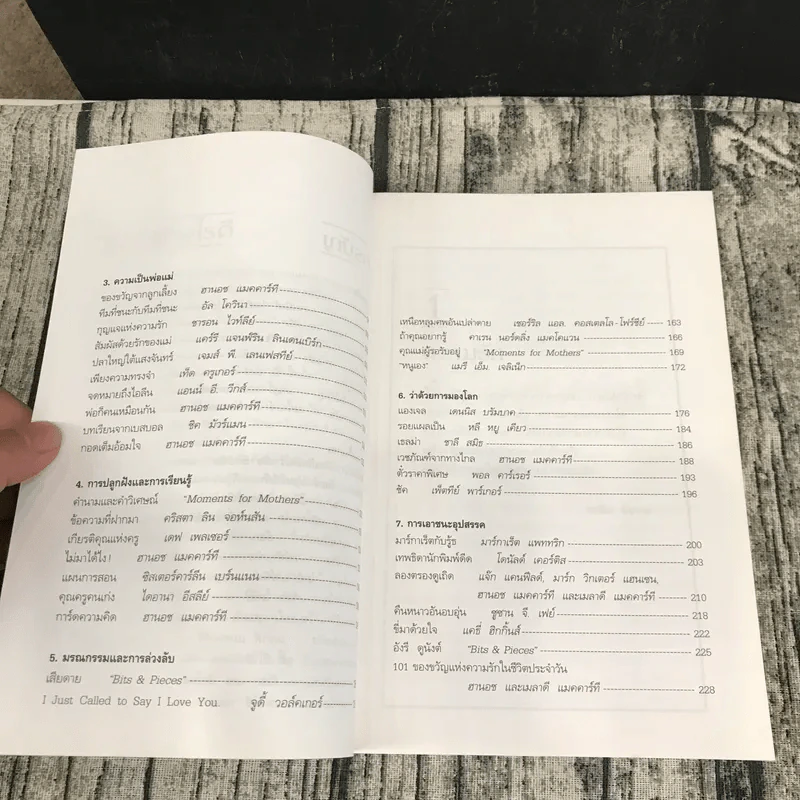 3. ความเป็นพ่อแม่
ของขวัญจากลูกเลี้ยง ฮานอช แมคคาร์ที
ทีมที่ชนะกับทีมที่ชนะ อัล โควินา
กุญแจแห่งความรัก ชารอน ไวท์ลีย์
สัมผัสด้วยรักของแม่ แคร์รี แจนพิริน ลินเดนเบิร์ก
ปลาใหญ่ใต้แสงจันทร์ เจมส์ พี. เลนเฟสทีย์
เพียงความทรงจำ เท็ด ครูเกอร์
จดหมายถึงไอลีน แอนน์ อี. วีกส์
พ่อก็คนเหมือนกัน ฮานอช แมคคาร์ที
บทเรียนจากเบสบอล ชิค มัวร์แมน
กอดเต็มอ้อมใจ ฮานอช แมคคาร์ที
4. การปลูกฝังและการเรียนรู้
คำนามและคำวิเศษณ์ "Moments for Mothers"
ข้อความที่ฝากมา คริสตา ลิน จอห์นสัน
เกียรติคุณแห่งครู เดฟ เพลเซอร์
ไม่มาได้ไง! ฮานอช แมคคาร์ที
แผนการสอน ซิสเตอร์คาร์ลีน เบร์นแนน
คุณครูคนเก่ง ไดอานา อีสลีย์
การ์ดความคิด ฮานอช แมคคาร์ที
5. มรณกรรมและการล่วงลับ
เสียดาย "Bits & Pieces"
I Just Called to Say I Love You. จูดี้ วอล์คเกอร์
เหนือหลุมศพอันเปล่าดาย เชอร์ริล แอล. คอสเตลโล-โฟร์ชีย์ 163
ถ้าคุณอยากรู้ คาเรน นอร์ดลิ่ง แมคโคแวน 166
คุณแม่ผู้รอรับอยู่ "Moments for Mothers" 169
"หนูเอง" แมรี เอ็ม. เจลิเน็ก 172
6. ว่าด้วยการมองโลก
แองเจล เดนนิส บรัมบาค 176
รอยแผลเป็น หลี หยู เคียว 184
เธลม่า ชาลี สมิธ 186
เวชภัณฑ์จากทางไกล ฮานอช แมคคาร์ที 188
ตั๋วราคาพิเศษ พอล คาร์เรอร์ 193
ชิค เพ็ตทีย์ พาร์เกอร์ 196
7. การเอาชนะอุปสรรค
มาร์กาเร็ตกับรู้ธ มาร์กาเร็ต แพททริก 200
เทพธิดานักพิมพ์ดีด โดนัลด์ เคอร์ติส 203
ลองตรองดูเถิด แจ๊ก แคนฟิลด์, มาร์ก วิกเตอร์ แฮนเซน,
ฮานอช แมคคาร์ที และเมลาดี แมคคาร์ที 210
คืนหนาวอันอบอุ่น ซูซาน จี. เฟย์ 218
ขี่มาด้วยใจ แคธี่ ฮิกกิ้นส์ 222
อังรี ดูนังต์ "Bits & Pieces" 225
101 ของขวัญแห่งความรักในชีวิตประจำวัน
ฮานอช และเมลาดี แมคคาร์ที 228